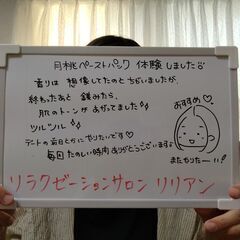 月桃ペーストパック 体験しました
香りは 想像してたのと ちがいましたが、
終わったあと 鏡みたら、
肌のトーンが あがってました
ツルツル
デートの前日とかに やりたいです♡
毎回 たのしい時間 ありがとうございます
おすすめ♡
またやりたーい!
リラクゼーションサロン リリアン